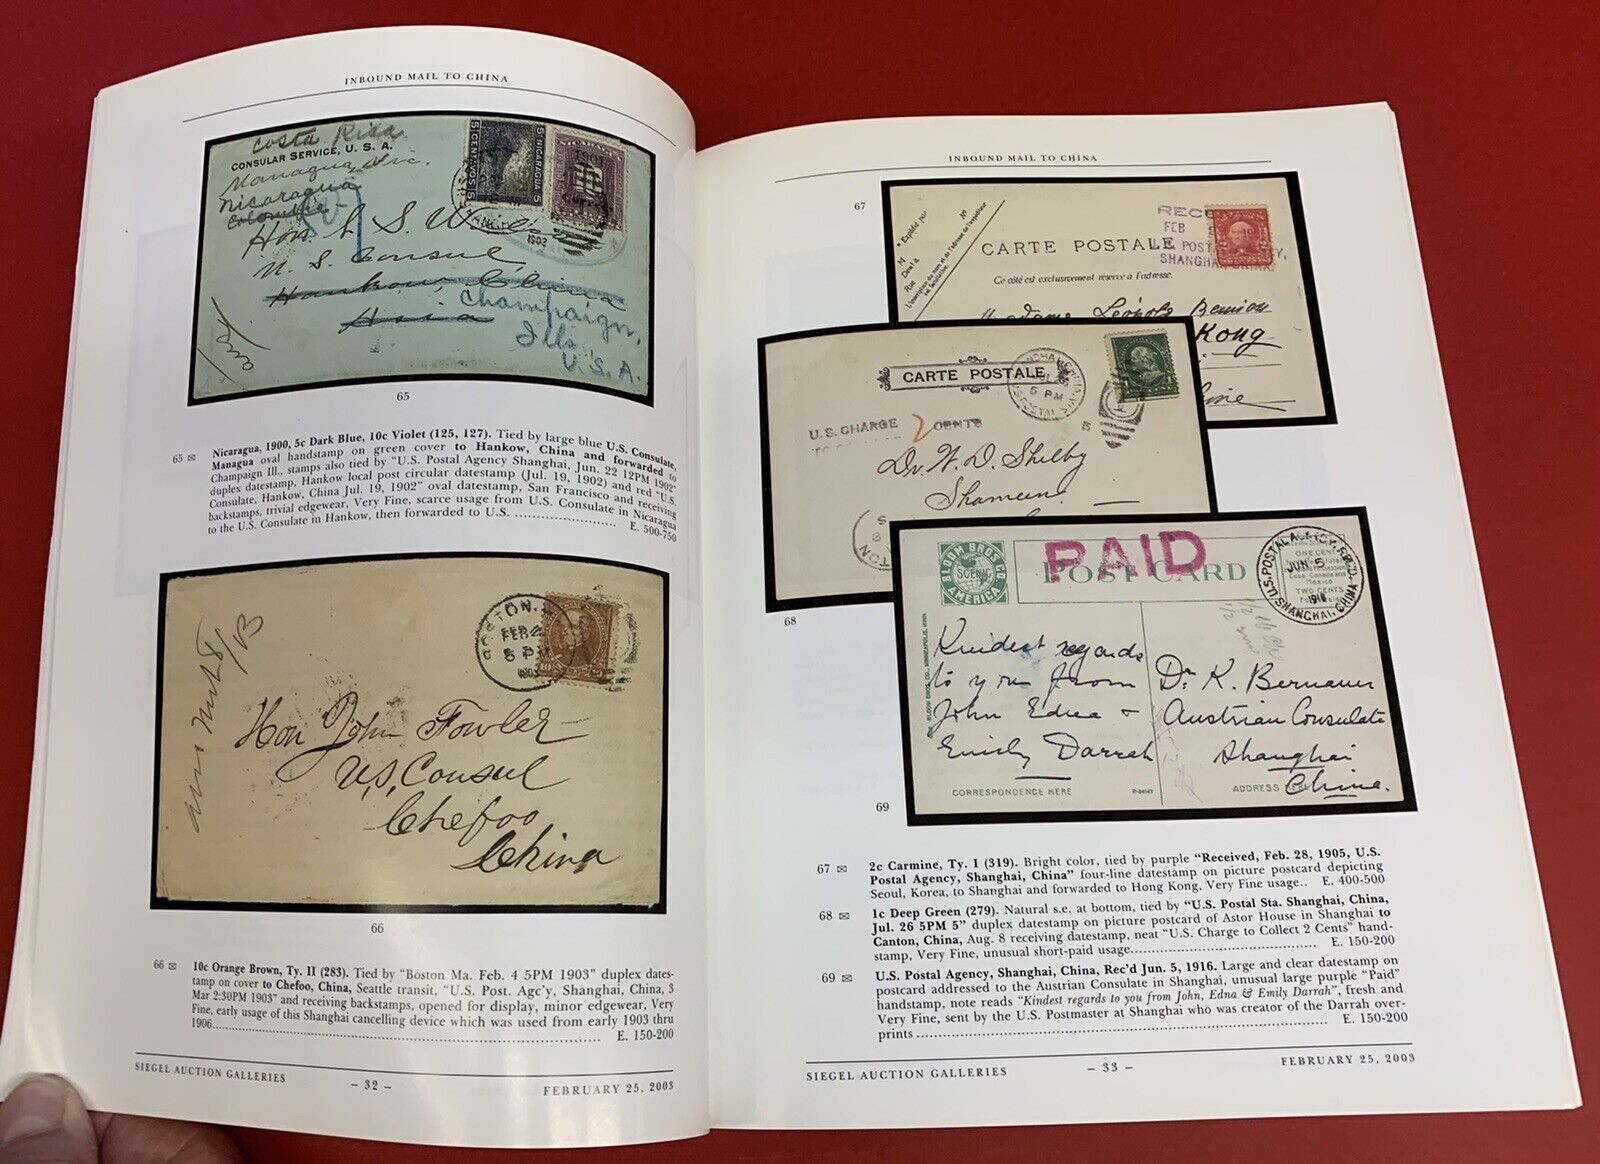 INBOUND MAIL TO CHINA
Costa Rica
CONSULAR SERVICE, U. S. A.
Managua, Nic.
Nicaragua
Colombia
5 CENTAVOS 5
5 NICARAGUA 5
1901
1902
Hon. L S.
U. S. Consul
Hankow, China
Asia
Champaign,
Ills.
U. S. A.
65
65 ✉ Nicaragua, 1900, 5c Dark Blue, 10c Violet (125, 127). Tied by large blue U.S. Consulate,
Managua oval handstamp on green cover to Hankow, China and forwarded to
Champaign Ill., stamps also tied by "U.S. Postal Agency Shanghai, Jun. 22 12PM 1902"
duplex datestamp, Hankow local post circular datestamp (Jul. 19, 1902) and red "U.S.
Consulate, Hankow, China Jul. 19, 1902" oval datestamp, San Francisco and receiving
backstamps, trivial edgewear, Very Fine, scarce usage from U.S. Consulate in Nicaragua
to the U.S. Consulate in Hankow, then forwarded to U.S. ........................ E. 500-750
BOSTON,
FEB 4
5 PM
1903
Hon John Fowler
U.S. Consul
Chefoo
China
66
66 ✉ 10c Orange Brown, Ty. II (283). Tied by "Boston Ma. Feb. 4 5PM 1903" duplex dates-
tamp on cover to Chefoo, China, Seattle transit, "U.S. Post. Agc'y, Shanghai, China, 3
Mar 2:30PM 1903" and receiving backstamps, opened for display, minor edgewear, Very
Fine, early usage of this Shanghai cancelling device which was used from early 1903 thru
1906.................................................................................................. E. 150-200
SIEGEL AUCTION GALLERIES
– 32 –
FEBRUARY 25, 2003
INBOUND MAIL TO CHINA
67
Expédié par
M
Rue
CARTE POSTALE
Ce côté est exclusivement réservé à l'adresse.
FEB
POSTAL
SHANGHAI, CHINA.
Madame Léopold
Kong
CARTE POSTALE
SHANGHAI, CHINA.
5 PM
U.S. POSTAL STA.
U.S. CHARGE 2 CENTS
Dr. W. D. Shelby
Shameen
CANTON
68
BLOOM BROS CO
SCENIC
AMERICA
PAID
POST CARD
U.S. POSTAL AGENCY REC'D.
JUN 5
1916
SHANGHAI, CHINA.
ONE CENT
Cuba Canada and
Mexico
TWO CENTS
Kindest regards
to you from
John Edna &
Emily Darrah
Dr. K. Bernauer
Austrian Consulate
Shanghai
China.
BLOOM BROS. CO., MINNEAPOLIS, MINN.
CORRESPONDENCE HERE
ADDRESS HERE
69
67 ✉ 2c Carmine, Ty. I (319). Bright color, tied by purple "Received, Feb. 28, 1905, U.S.
Postal Agency, Shanghai, China" four-line datestamp on picture postcard depicting
Seoul, Korea, to Shanghai and forwarded to Hong Kong, Very Fine usage.. E. 400-500
68 ✉ 1c Deep Green (279). Natural s.e. at bottom, tied by "U.S. Postal Sta. Shanghai, China,
Jul. 26 5PM 5" duplex datestamp on picture postcard of Astor House in Shanghai to
Canton, China, Aug. 8 receiving datestamp, neat "U.S. Charge to Collect 2 Cents" hand-
stamp, Very Fine, unusual short-paid usage............................................ E. 150-200
69 ✉ U.S. Postal Agency, Shanghai, China, Rec'd Jun. 5, 1916. Large and clear datestamp on
postcard addressed to the Austrian Consulate in Shanghai, unusual large purple "Paid"
handstamp, note reads "Kindest regards to you from John, Edna & Emily Darrah", fresh and
Very Fine, sent by the U.S. Postmaster at Shanghai who was creator of the Darrah over-
prints .................................................................................................. E. 150-200
SIEGEL AUCTION GALLERIES
– 33 –
FEBRUARY 25, 2003